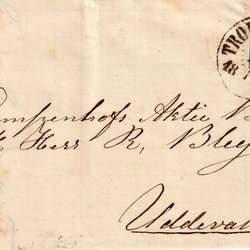 TRO
18
mpenhofs Aktie B
Herr R, Bley
Uddeval